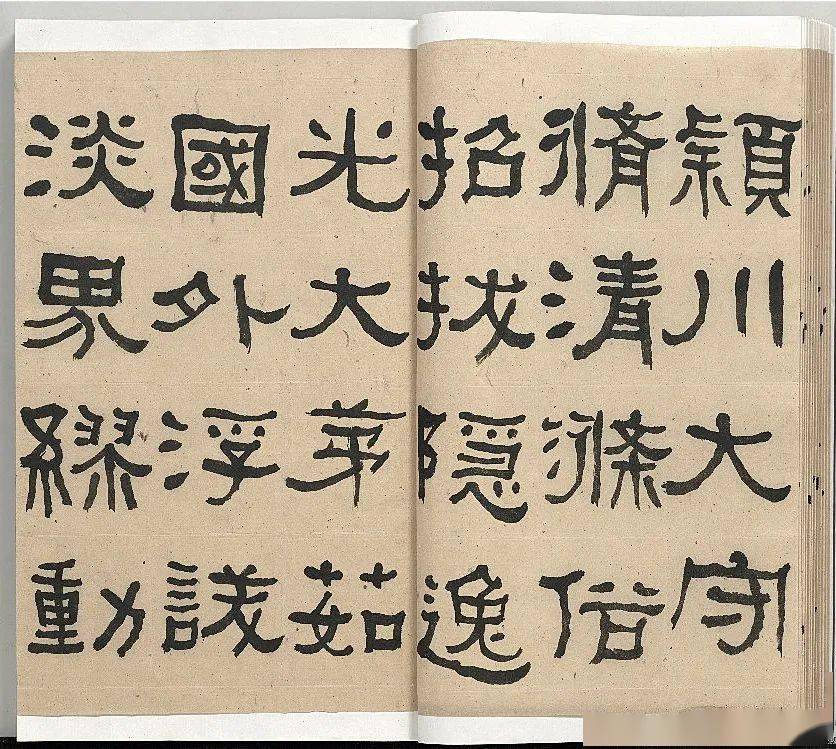 穎川大守
脩清滌俗
招拔隱逸
光大茅茹
國外浮議
淡界繆動